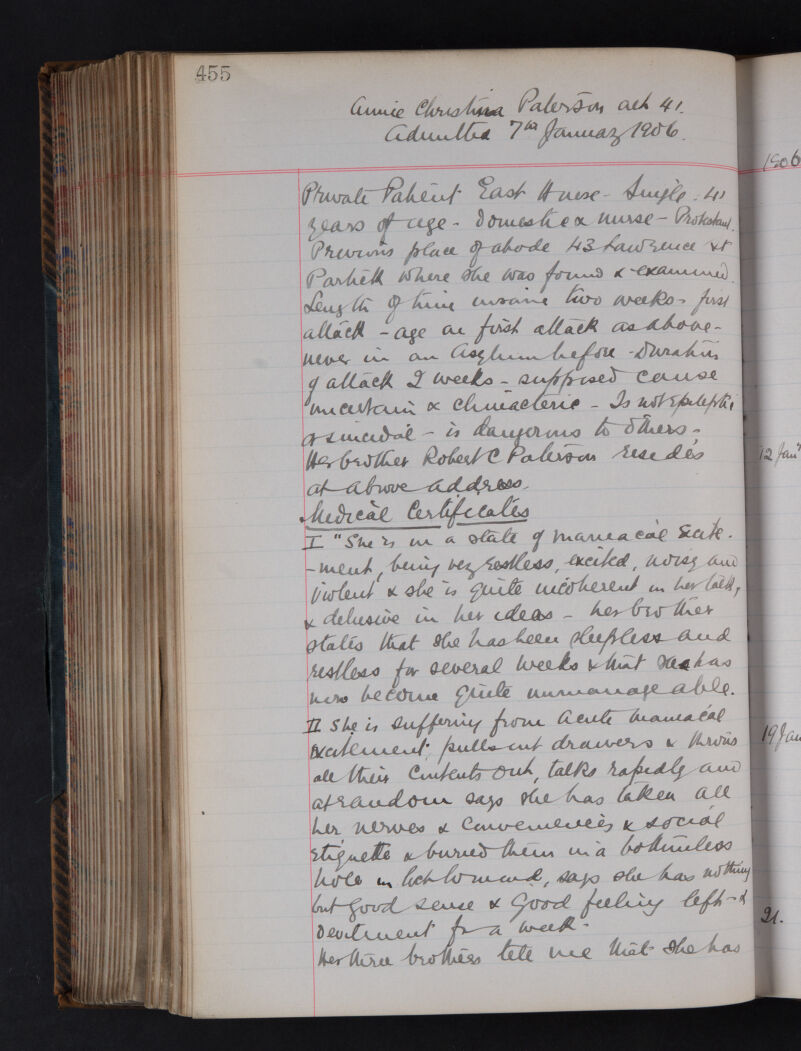 455
Annie Christina Paterson aet 41.
Admitted 7th January 1906.
1906
Private Patient East House - Single : 41
years of age - Domestic & nurse - Protestant.
Previous place of abode 43 Lawrence St
Partick where she was found & examined.
Length of time insane two weeks - first
attack - age on first attack as above -
never in an Asylum before - Duration
of attack 2 weeks - supposed cause
uncertain & climacteric - Is not Epileptic
or suicidal - is dangerous to others -
Her brother Robert C Paterson resides
at above address.
12 Jany
Medical Certificates
I "She is in a state of maniacal Excite-
-ment, being very restless, excited, noisy and
violent & she is quite incoherent in her talk,
& delusive in her ideas - her brother
states that she has been sleepless and
restless for several weeks & that she has
now become quite unmanageable.
II She is suffering from Acute maniacal
Excitement; pulls out drawers & throws
19 Jan
all their contents out, talks rapidly and
at random says she has taken all
her nerves & conveniences & social
etiquette & buried them in a bottomless
hole in Loch Lomond, says she has nothing
but good sense & good feeling left - &
21.
for a week -
Her three brothers tell me that she has